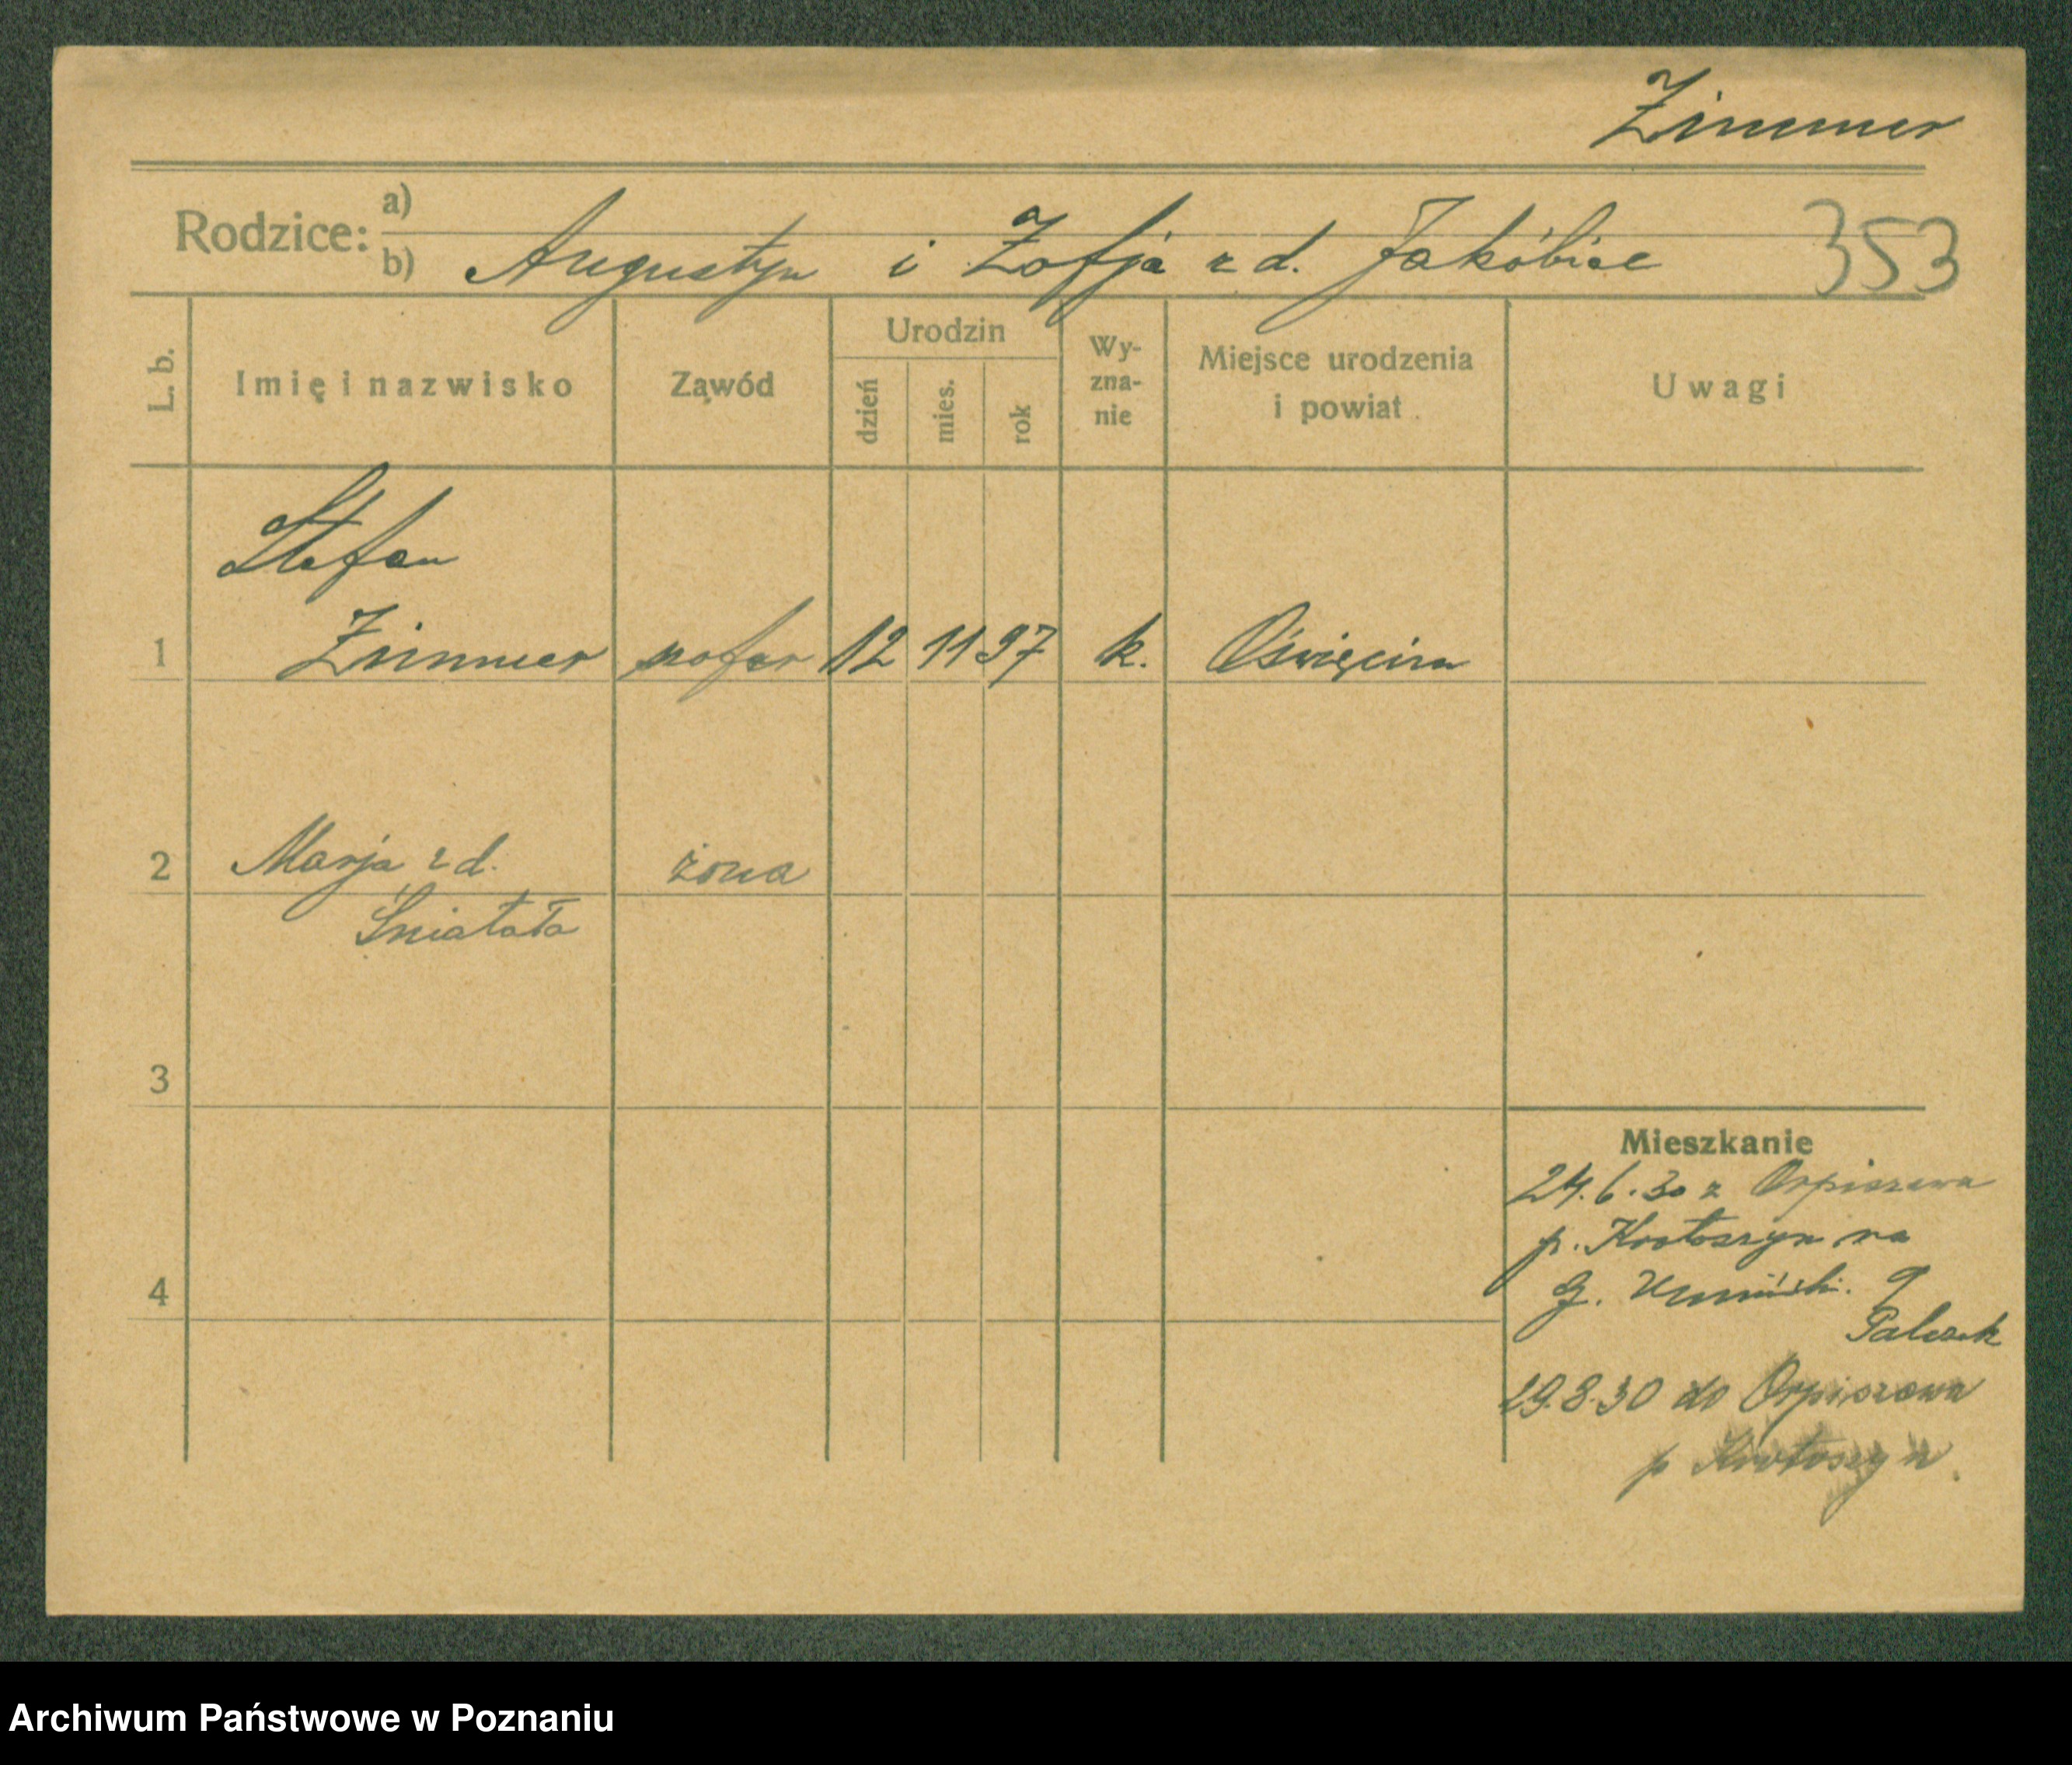 Zimmer
Rodzice: a)
b) Augustyn i Zofja z d. Jakóbiec
353
L. b.
Imię i nazwisko
Ząwód
Urodzin
dzień
mies.
rok
Wy-
zna-
nie
Miejsce urodzenia
i powiat
Uwagi
Stefan
1 Zimmer szofer 12 11 97 k. Oświęcim
2 Marja z d. żona
Śniatała
3
4
Mieszkanie
24.6.30 z Orpiszewa
p. Krotoszyn na
G. 9
Palczak
29.8.30 do Orpiszewa
p Krotoszyn.
Archiwum Państwowe w Poznaniu